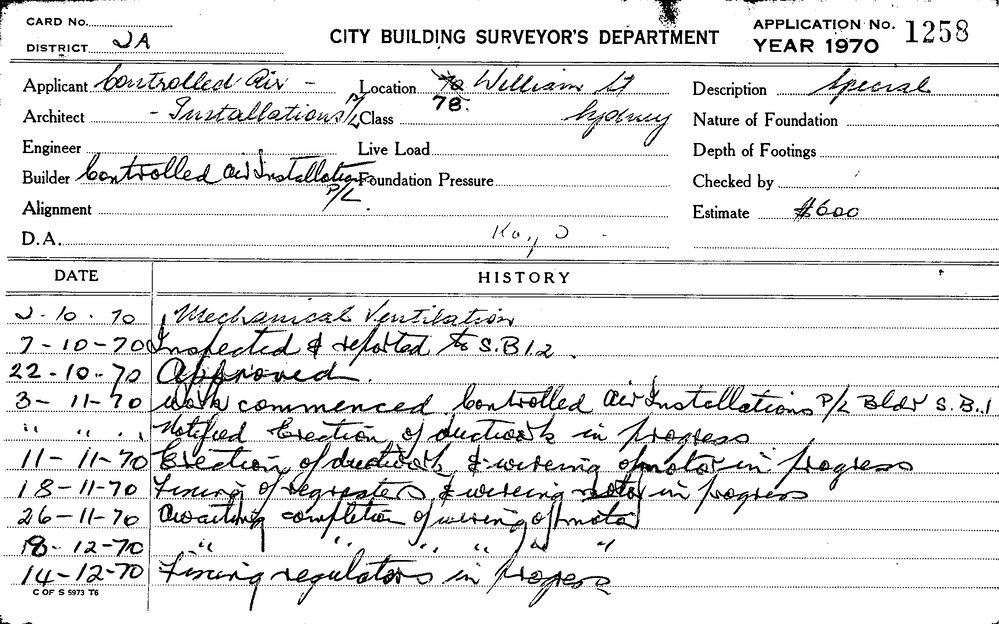 CARD No.
DISTRICT 2A
CITY BUILDING SURVEYOR'S DEPARTMENT
APPLICATION No. 1258
YEAR 1970
Applicant Controlled Air -
Location 70 William St
78.
Description Special
Architect - Installations P/L
Class Sydney
Nature of Foundation
Engineer
Live Load
Depth of Footings
Builder Controlled Air Installations P/L.
Foundation Pressure
Checked by
Alignment
Estimate $600
D.A.
DATE HISTORY
2-10-70 Mechanical Ventilation
7-10-70 Inspected & reported to S.B12.
22-10-70 Approved.
3-11-70 Work commenced. Controlled Air Installations P/L Bldr S.B.1
" " " Notified Erection of ductwork in progress
11-11-70 Erection of ductwork & wireing of motor in progress
18-11-70 Fixing of regresters & wireing motor in progress
26-11-70 Awaiting completion of wireing of motor
8-12-70 " " " " " "
14-12-70 Fixing regulators in progress
C OF S 5973 T6